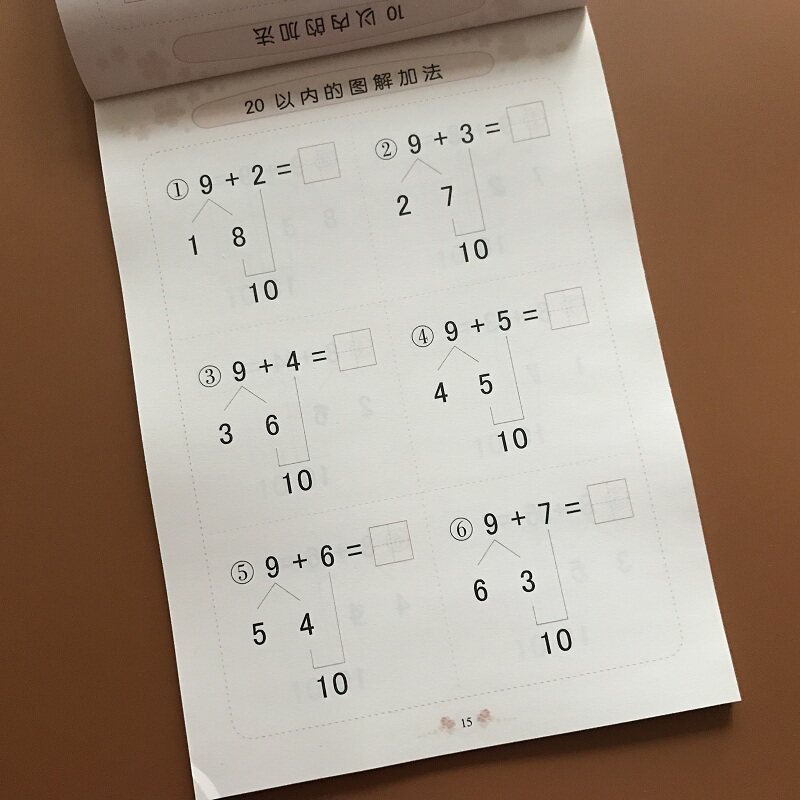 10 以内的加法
20 以内的图解加法
① 9 + 2 =
1 8
10
② 9 + 3 =
2 7
10
③ 9 + 4 =
3 6
10
④ 9 + 5 =
4 5
10
⑤ 9 + 6 =
5 4
10
⑥ 9 + 7 =
6 3
10
15